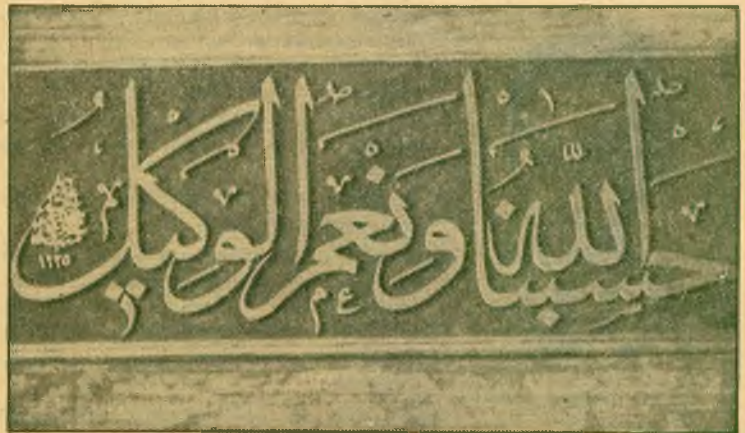 حسبنا الله ونعم الوكيل
١٢٢٥